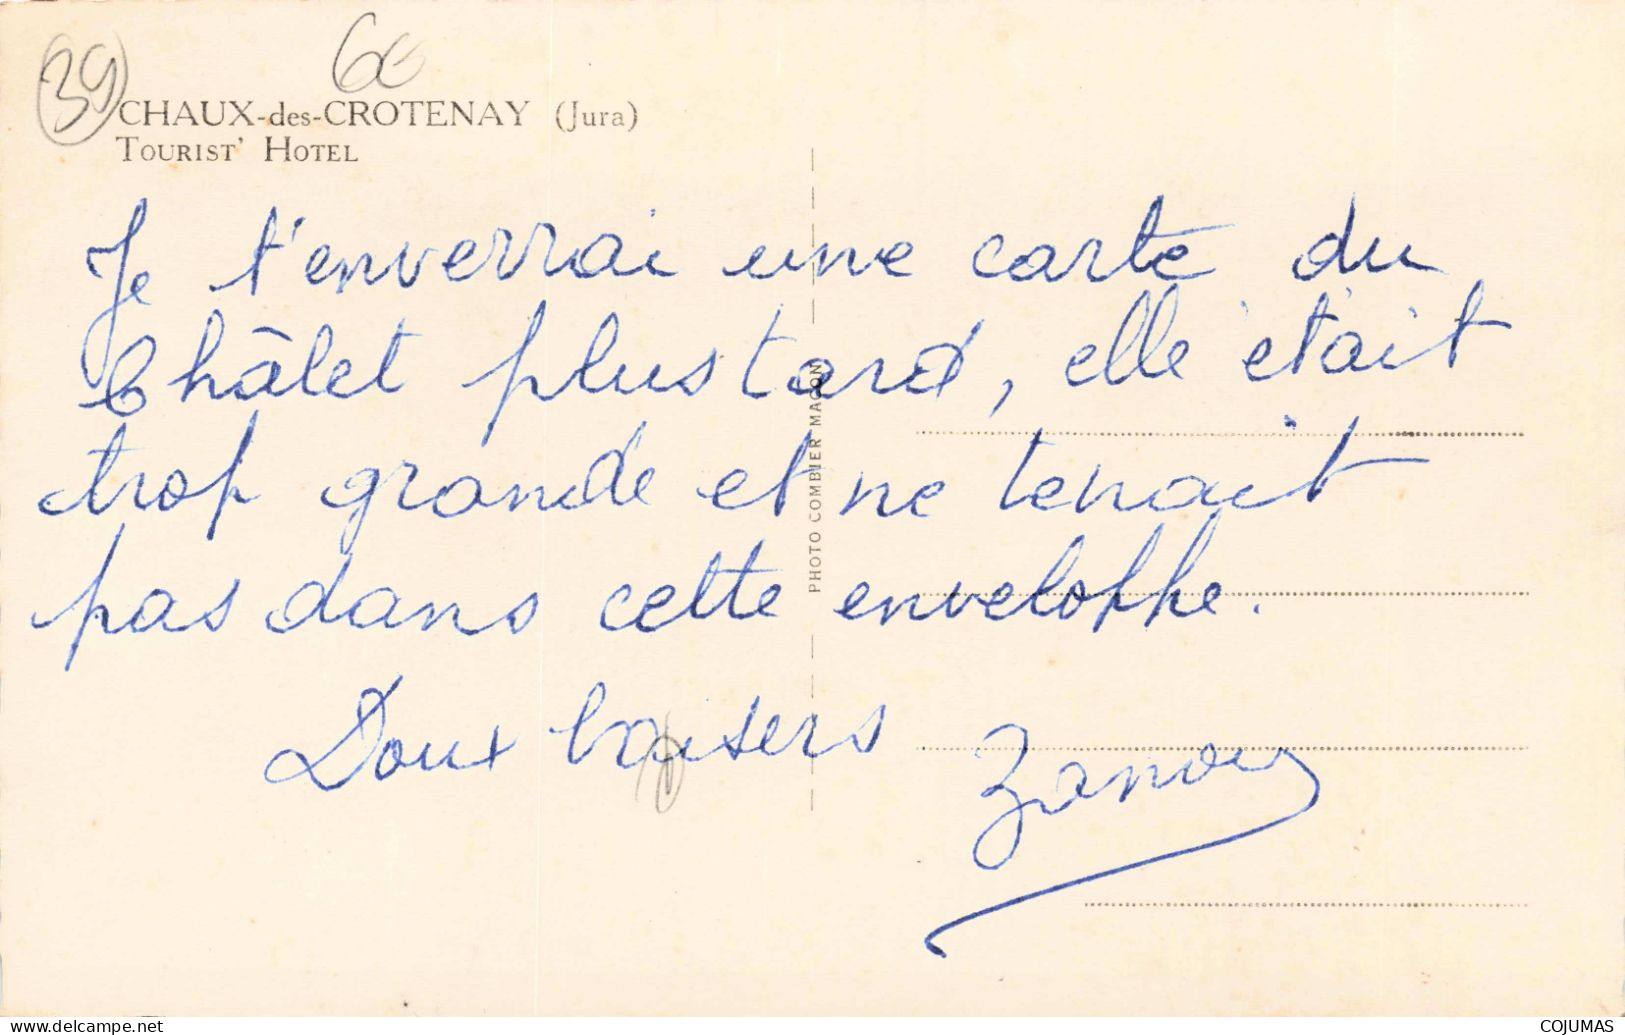 39
6€
CHAUX-des-CROTENAY (Jura)
TOURIST' HOTEL
Je t'enverrai une carte du
Châlet plus tard, elle était
trop grande et ne tenait
pas dans cette enveloppe.
Doux baisers
Zanou
PHOTO COMBIER MACON
www.delcampe.net
COJUMAS